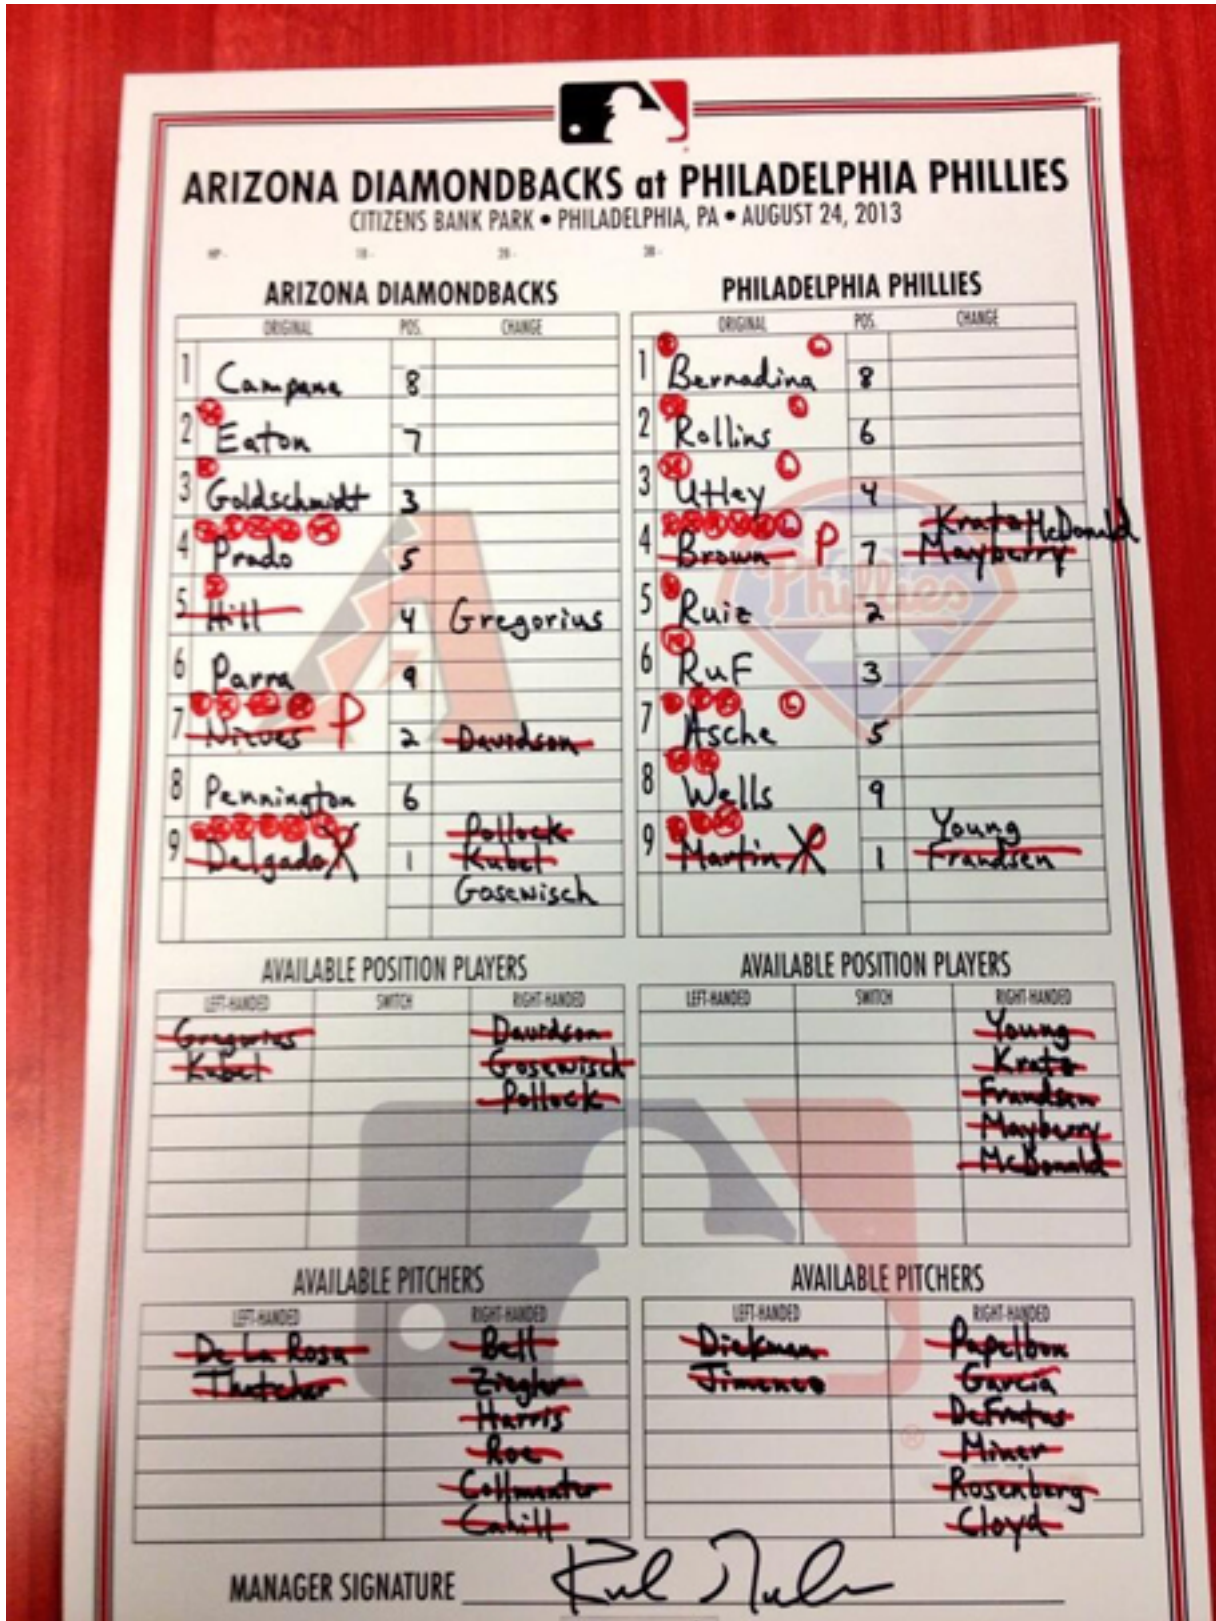 ARIZONA DIAMONDBACKS at PHILADELPHIA PHILLIES
CITIZENS BANK PARK • PHILADELPHIA, PA • AUGUST 24, 2013
HP- 1B- 2B- 3B-
ARIZONA DIAMONDBACKS
ORIGINAL POS. CHANGE
1 Campana 8
2 Eaton 7
3 Goldschmidt 3
4 Prado 5
5 Hill 4 Gregorius
6 Parra 9
7 Nieves P 2 Davidson
8 Pennington 6
Pollock
9 Delgado X 1 Kubel
Gosewisch
PHILADELPHIA PHILLIES
ORIGINAL POS. CHANGE
1 Bernadina 8
2 Rollins 6
3 Utley 4
Kratz McDonald
4 Brown P 7 Mayberry
5 Ruiz 2
6 Ruf 3
7 Asche 5
8 Wells 9
Young
9 Martin X P 1 Frandsen
Phillies
AVAILABLE POSITION PLAYERS
LEFT-HANDED SWITCH RIGHT-HANDED
Gregorius Davidson
Kubel Gosewisch
Pollock
AVAILABLE POSITION PLAYERS
LEFT-HANDED SWITCH RIGHT-HANDED
Young
Kratz
Frandsen
Mayberry
McDonald
AVAILABLE PITCHERS
LEFT-HANDED RIGHT-HANDED
De La Rosa Bell
Thatcher Ziegler
Harris
Roe
Collmenter
Cahill
AVAILABLE PITCHERS
LEFT-HANDED RIGHT-HANDED
Diekman Papelbon
Jimenez Garcia
DeFratus
Miner
Rosenberg
Cloyd
MANAGER SIGNATURE